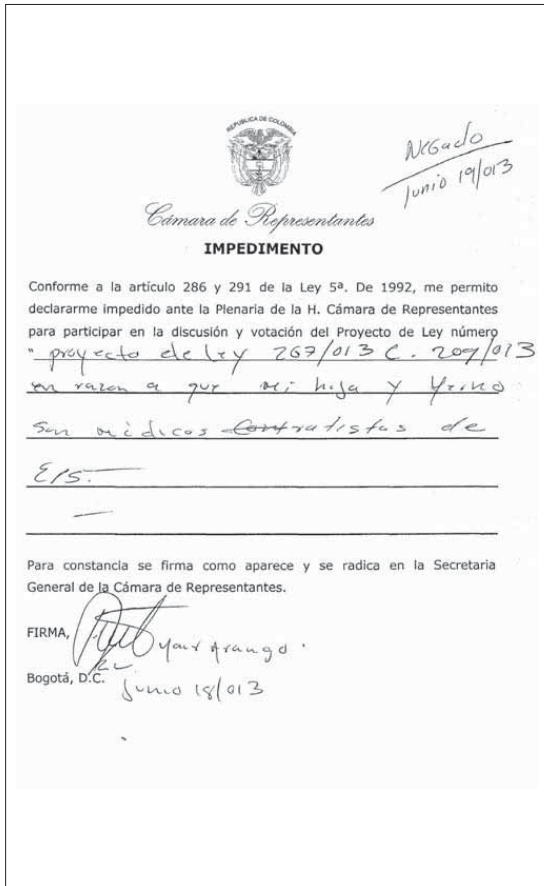 REPUBLICA DE COLOMBIA
Negado
Junio 19/013
Cámara de Representantes
IMPEDIMENTO
Conforme a la artículo 286 y 291 de la Ley 5ª. De 1992, me permito
declararme impedido ante la Plenaria de la H. Cámara de Representantes
para participar en la discusión y votación del Proyecto de Ley número
" proyecto de ley 267/013 C. 209/013
en razon a que mi hija y Yerno
son médicos Contratistas de
EPS.
Para constancia se firma como aparece y se radica en la Secretaria
General de la Cámara de Representantes.
FIRMA,
Arango.
Bogotá, D.C. Junio 18/013